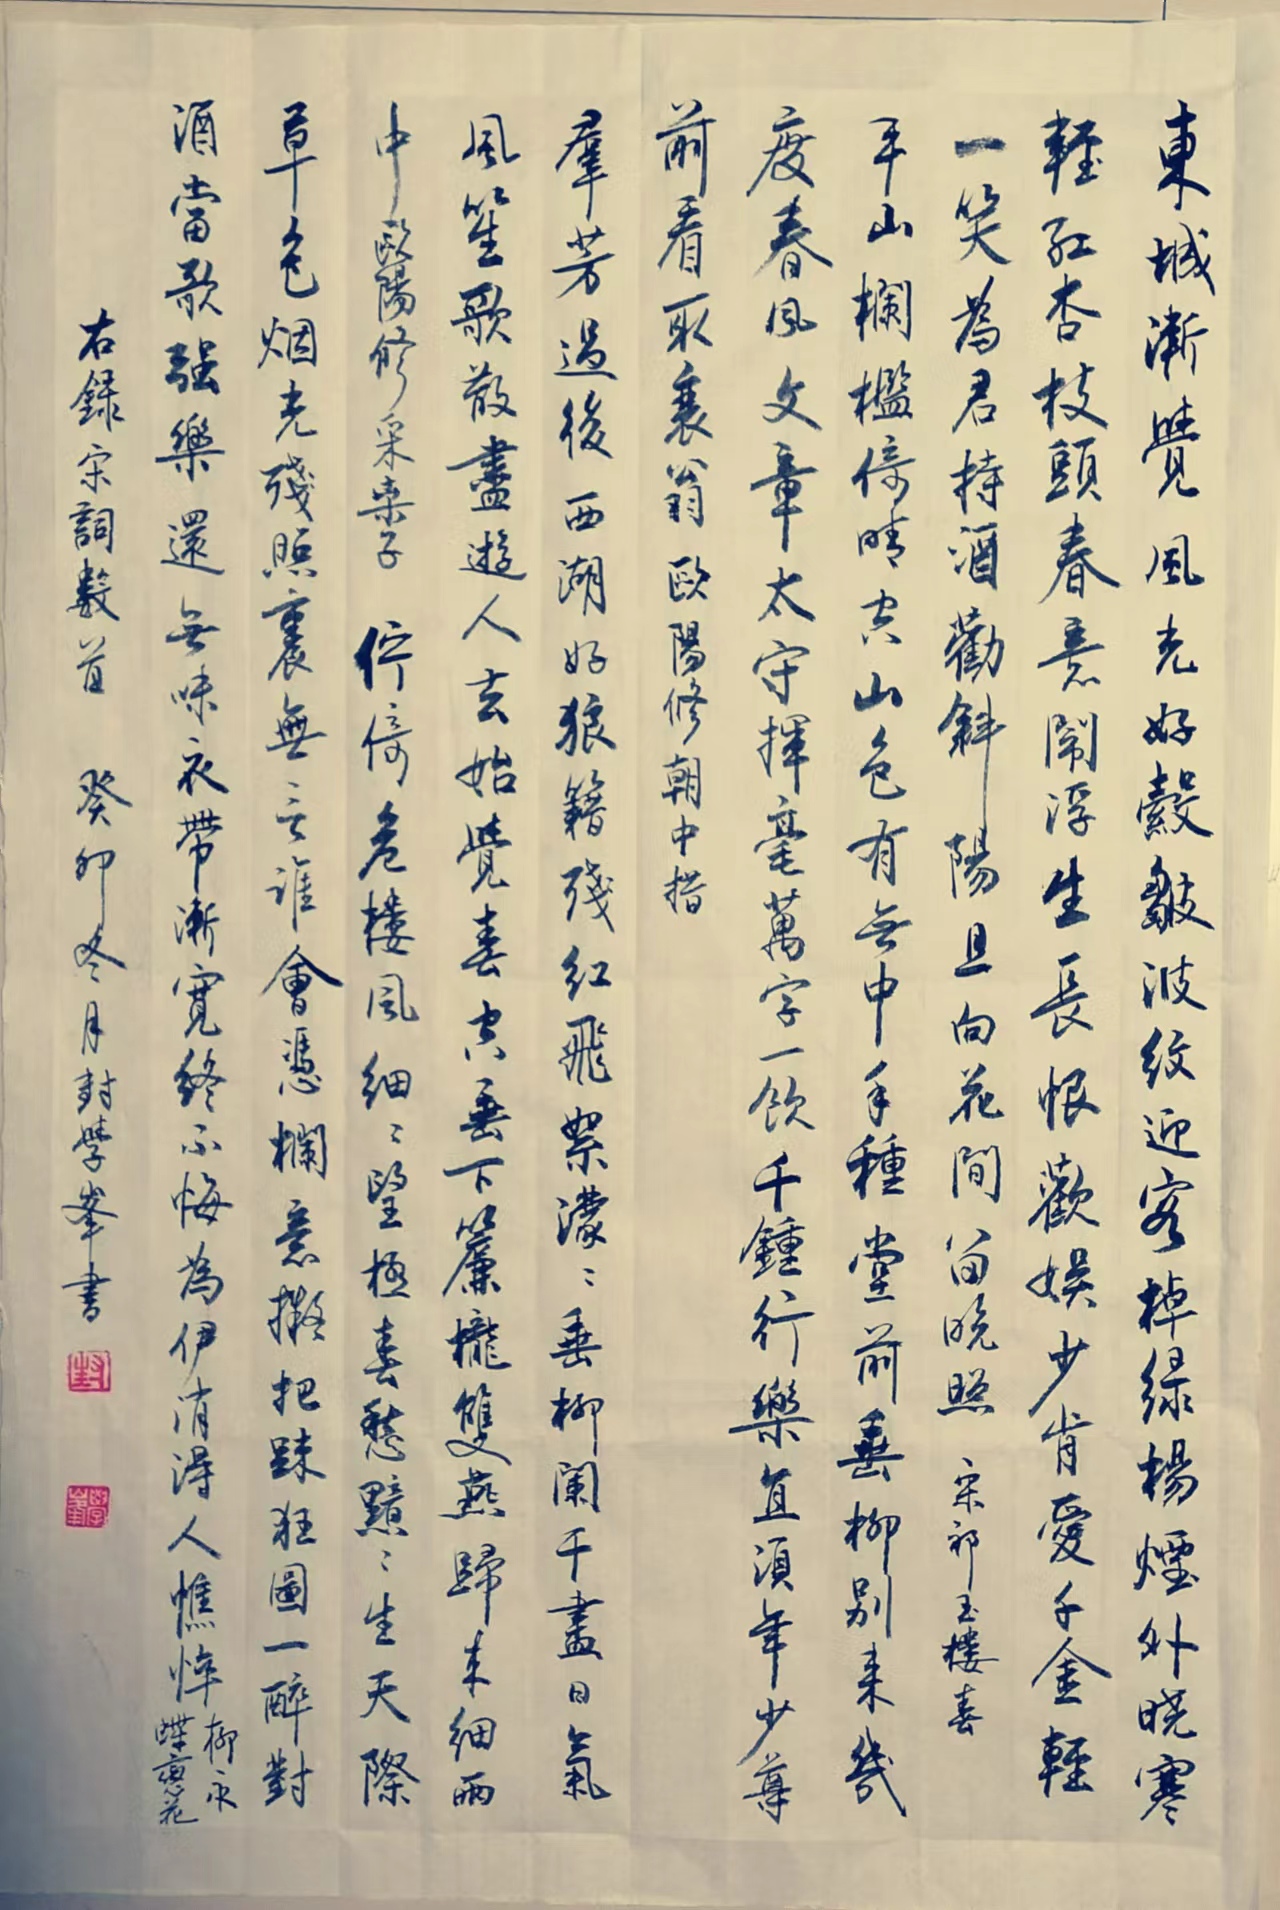 東城漸覺風光好縠皺波紋迎客棹綠楊煙外曉寒
輕紅杏枝頭春意鬧浮生長恨歡娛少肯愛千金輕
一笑為君持酒勸斜陽且向花間留晚照 宋祁玉樓春
平山欄檻倚晴空山色有無中手種堂前垂柳別來幾
度春風文章太守揮毫萬字一飲千鍾行樂直須年少尊
前看取衰翁 歐陽修朝中措
羣芳過後西湖好狼籍殘紅飛絮濛〻垂柳闌干盡日氣
風笙歌散盡遊人去始覺春空垂下簾櫳雙燕歸來細雨
中 歐陽修采桑子 佇倚危樓風細〻望極春愁黯〻生天際
草色烟光殘照裏無言誰會憑欄意擬把踈狂圖一醉對
酒當歌强樂還無味衣帶漸寬終不悔為伊消得人憔悴 柳永
蝶戀花
右録宋詞數首 癸卯冬月封學峯書
封
學峯